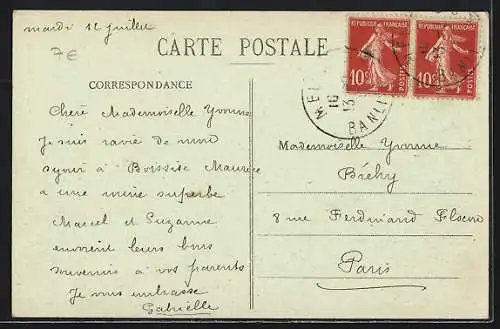 mardi 12 juillet
7€
CARTE POSTALE
CORRESPONDANCE
RÉPUBLIQUE FRANÇAISE
10c
POSTES
RÉPUBLIQUE FRANÇAISE
10c
POSTES
BANLI
Chere Mademoiselle Yvonne
Je suis ravie de mon
sejour à Boissise
a une mine superbe
Marcel et Suzanne
envoient leurs bons
souvenirs à vos parents
Je vous embrasse
Gabrielle
Mademoiselle Yvonne
Bréhy
8 rue Ferdinand Flocon
Paris